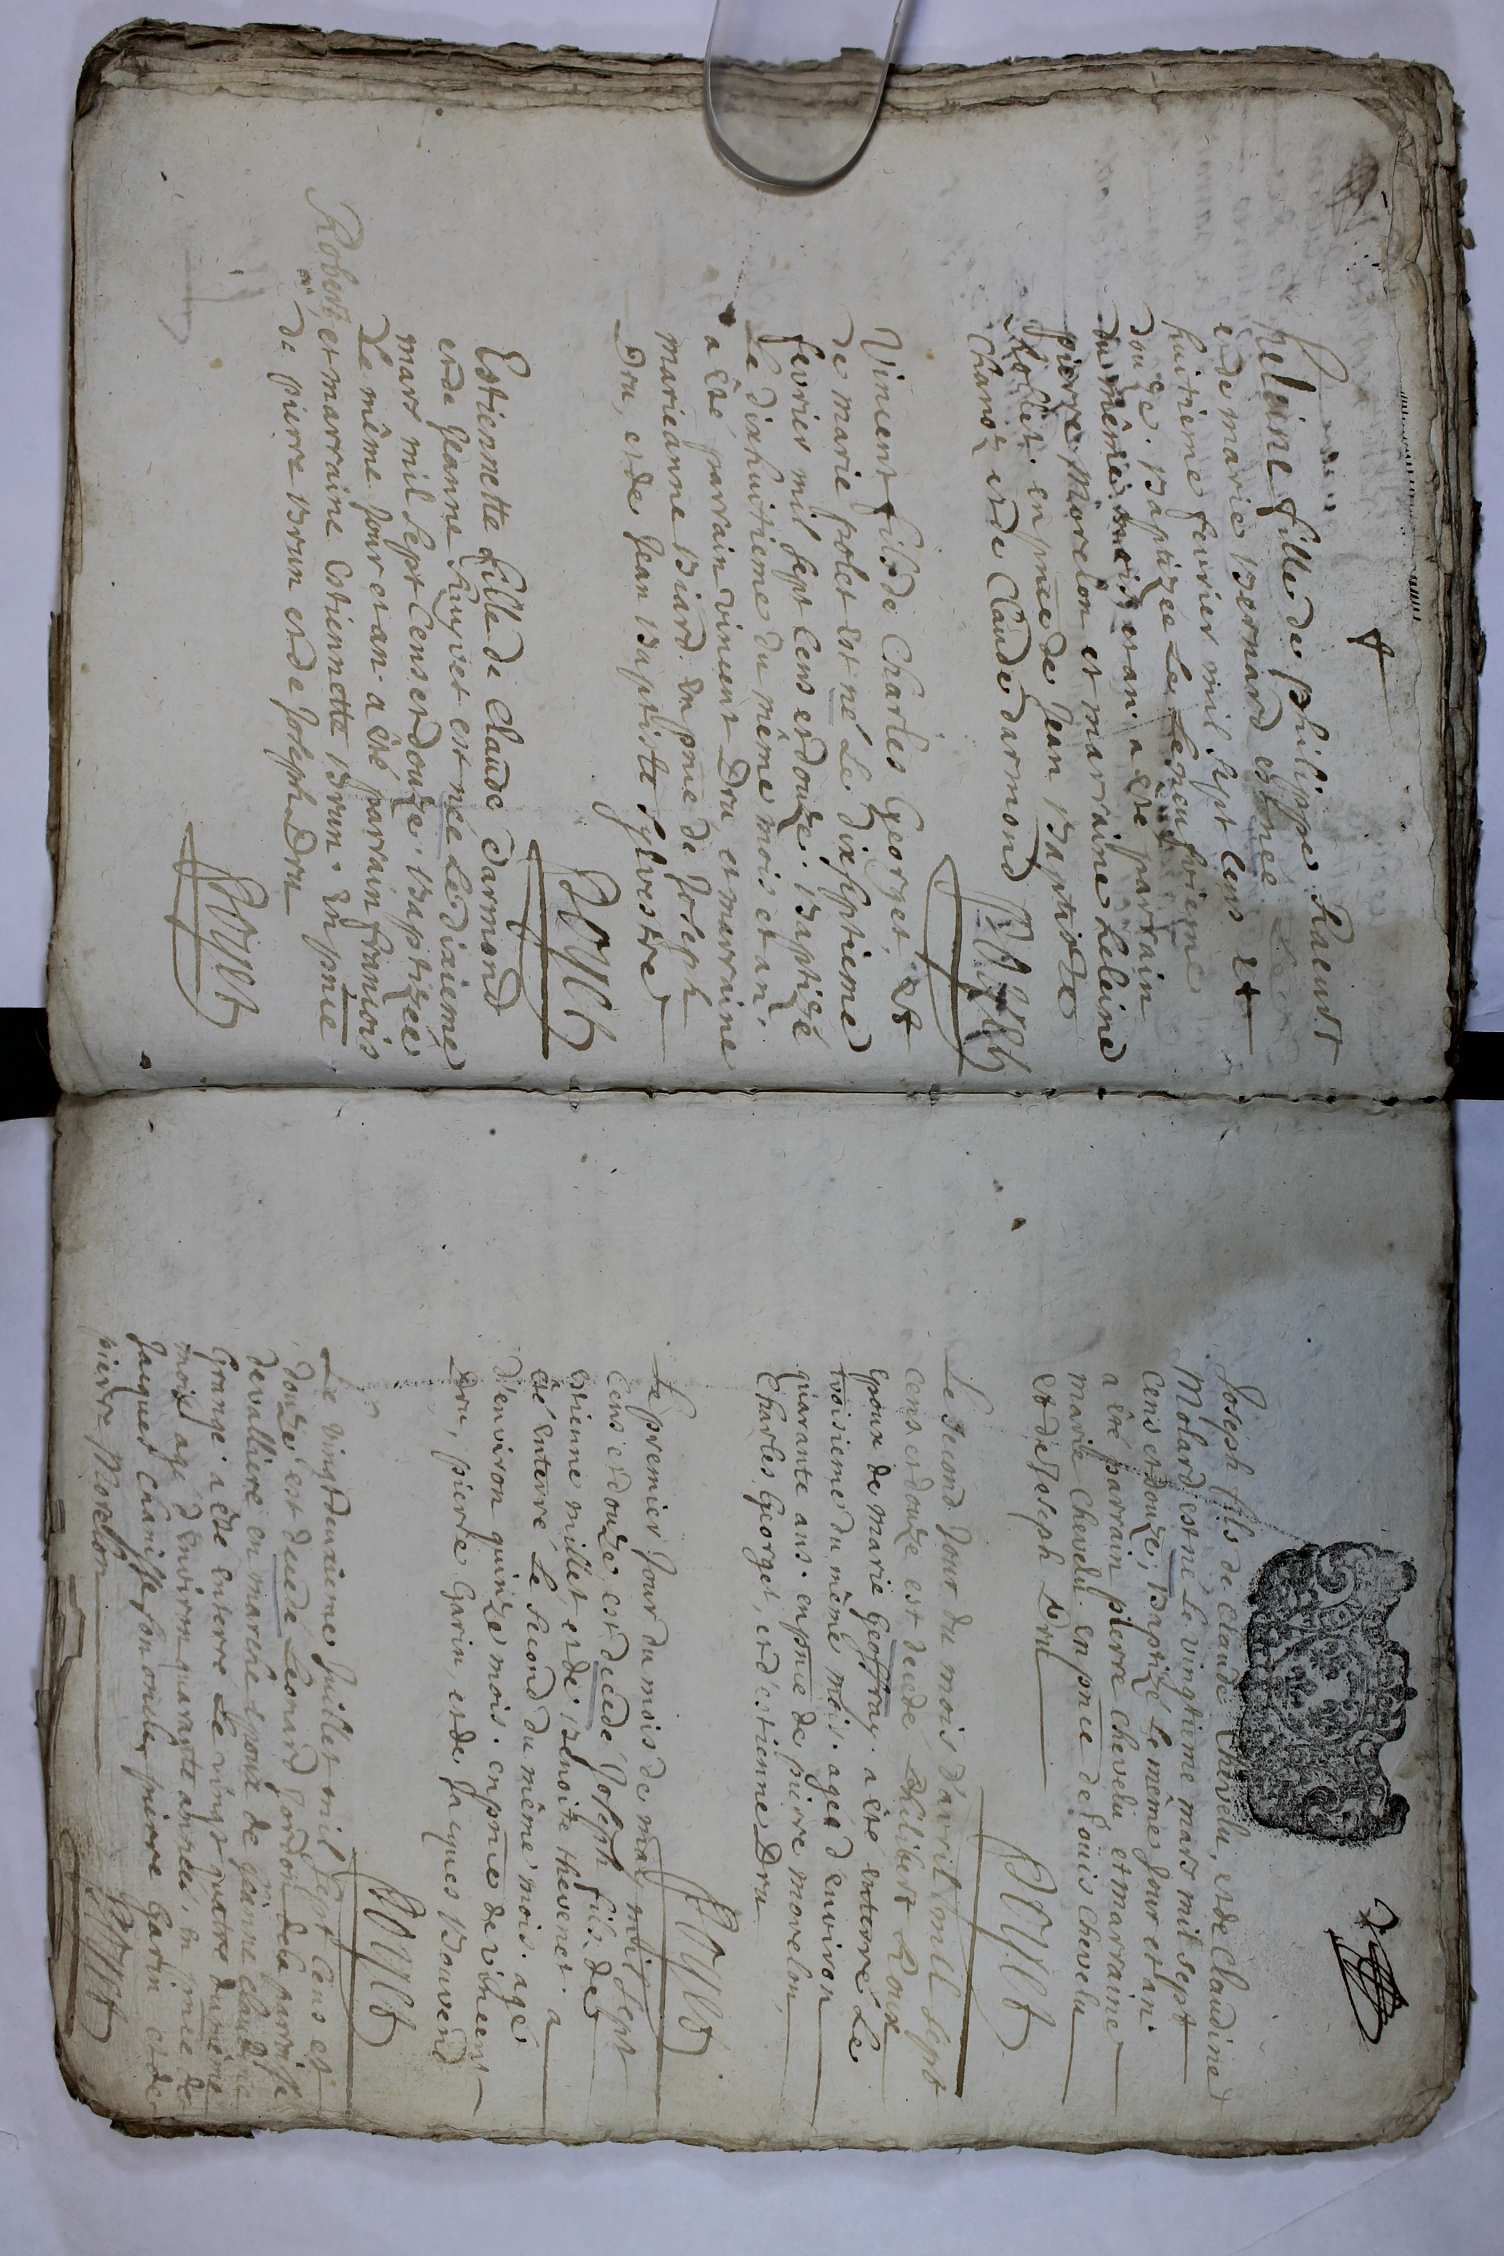 helaine fille de philippe Raeust
et de marie Bernard est née Le
huitieme fevrier mil sept cens et
douze. Baptizée Le neufvieme
du même mois et an. a été parrain
pierre Morelon et marraine heleine
Jolit. en pñce de Jean Baptiste
Chanst et de Claude darmond
Vincent fils de Charles Georget, et
de marie polet est né Le dixseptieme
fevrier mil sept cens et douze. Baptizé
Le dixhuitieme du même mois et an.
a été parrain vincent Dru et marraine
marieanne Biard. en pñce de Joseph
Dru, et de Jean Baptiste Sylvestre
Estiennette fille de Claude darmond
et de Jeanne Ruyet est née Le dixieme
mars mil sept cens et douze. Baptizée
Le même jour et an. a été parrain francois
Robert, et marraine Estiennette Brun. en pñce
de pierre Brun et de Joseph Dru
Joseph fils de Claude Chevelu, et de Claudine
Molard est né Le vingtieme mars mil sept
cens et douze, Baptizé Le même Jour et an.
a été parrain pierre chevelu, et marraine
marie Chevelu. en pñce de Louis chevelu
et de Joseph Dru
Le second Jour du mois d'avril mil sept
cens et douze est decedé philibert Roux
Epoux de marie Geoffray. a été enterré Le
troisieme du même mois. agé d'environ
quarante ans. en pñce de pierre morelon,
Charles Georget, et d'estienne Dru
Le premier Jour du mois de may mil sept
cens et douze est decedé Joseph fils de
Estienne millet, et de Benoite thevenet. a
été enterré Le second du même mois. agé
d'environ quinze mois. en pñce de vincent
Dru, pierre Garin, et de Jacques Bouvend
Le vingtdeuxieme Juillet mil sept cens et
douze est decedé Leonard Gordon de la parroisse
de valliere en marche epoux de Jeanne Claudine
Grange. a été enterré Le vingt quatre du même
mois, agé d'environ quarante années, en pñce de
Jacques Chanisse son oncle, pierre Garin et de
pierre Morelon